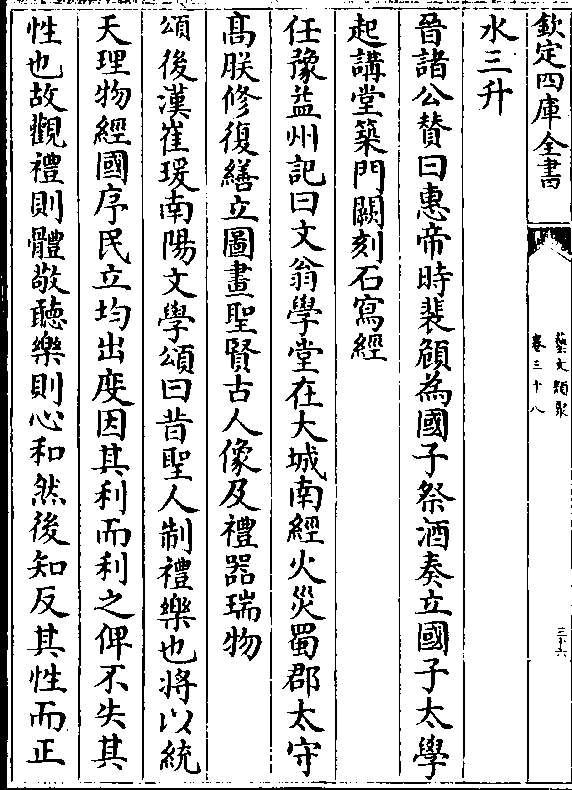 欽定四庫全書
藝文類聚
卷三十八
三十六
水三升
晉諸公賛曰惠帝時裴頠為國子祭酒奏立國子太學
起講堂築門闕刻石寫經
任豫益州記曰文翁學堂在大城南經火災蜀郡太守
髙朕修復繕立圖畫聖賢古人像及禮器瑞物
頌後漢崔瑗南陽文學頌曰昔聖人制禮樂也將以統
天理物經國序民立均出度因其利而利之俾不失其
性也故觀禮則體敬聽樂則心和然後知反其性而正